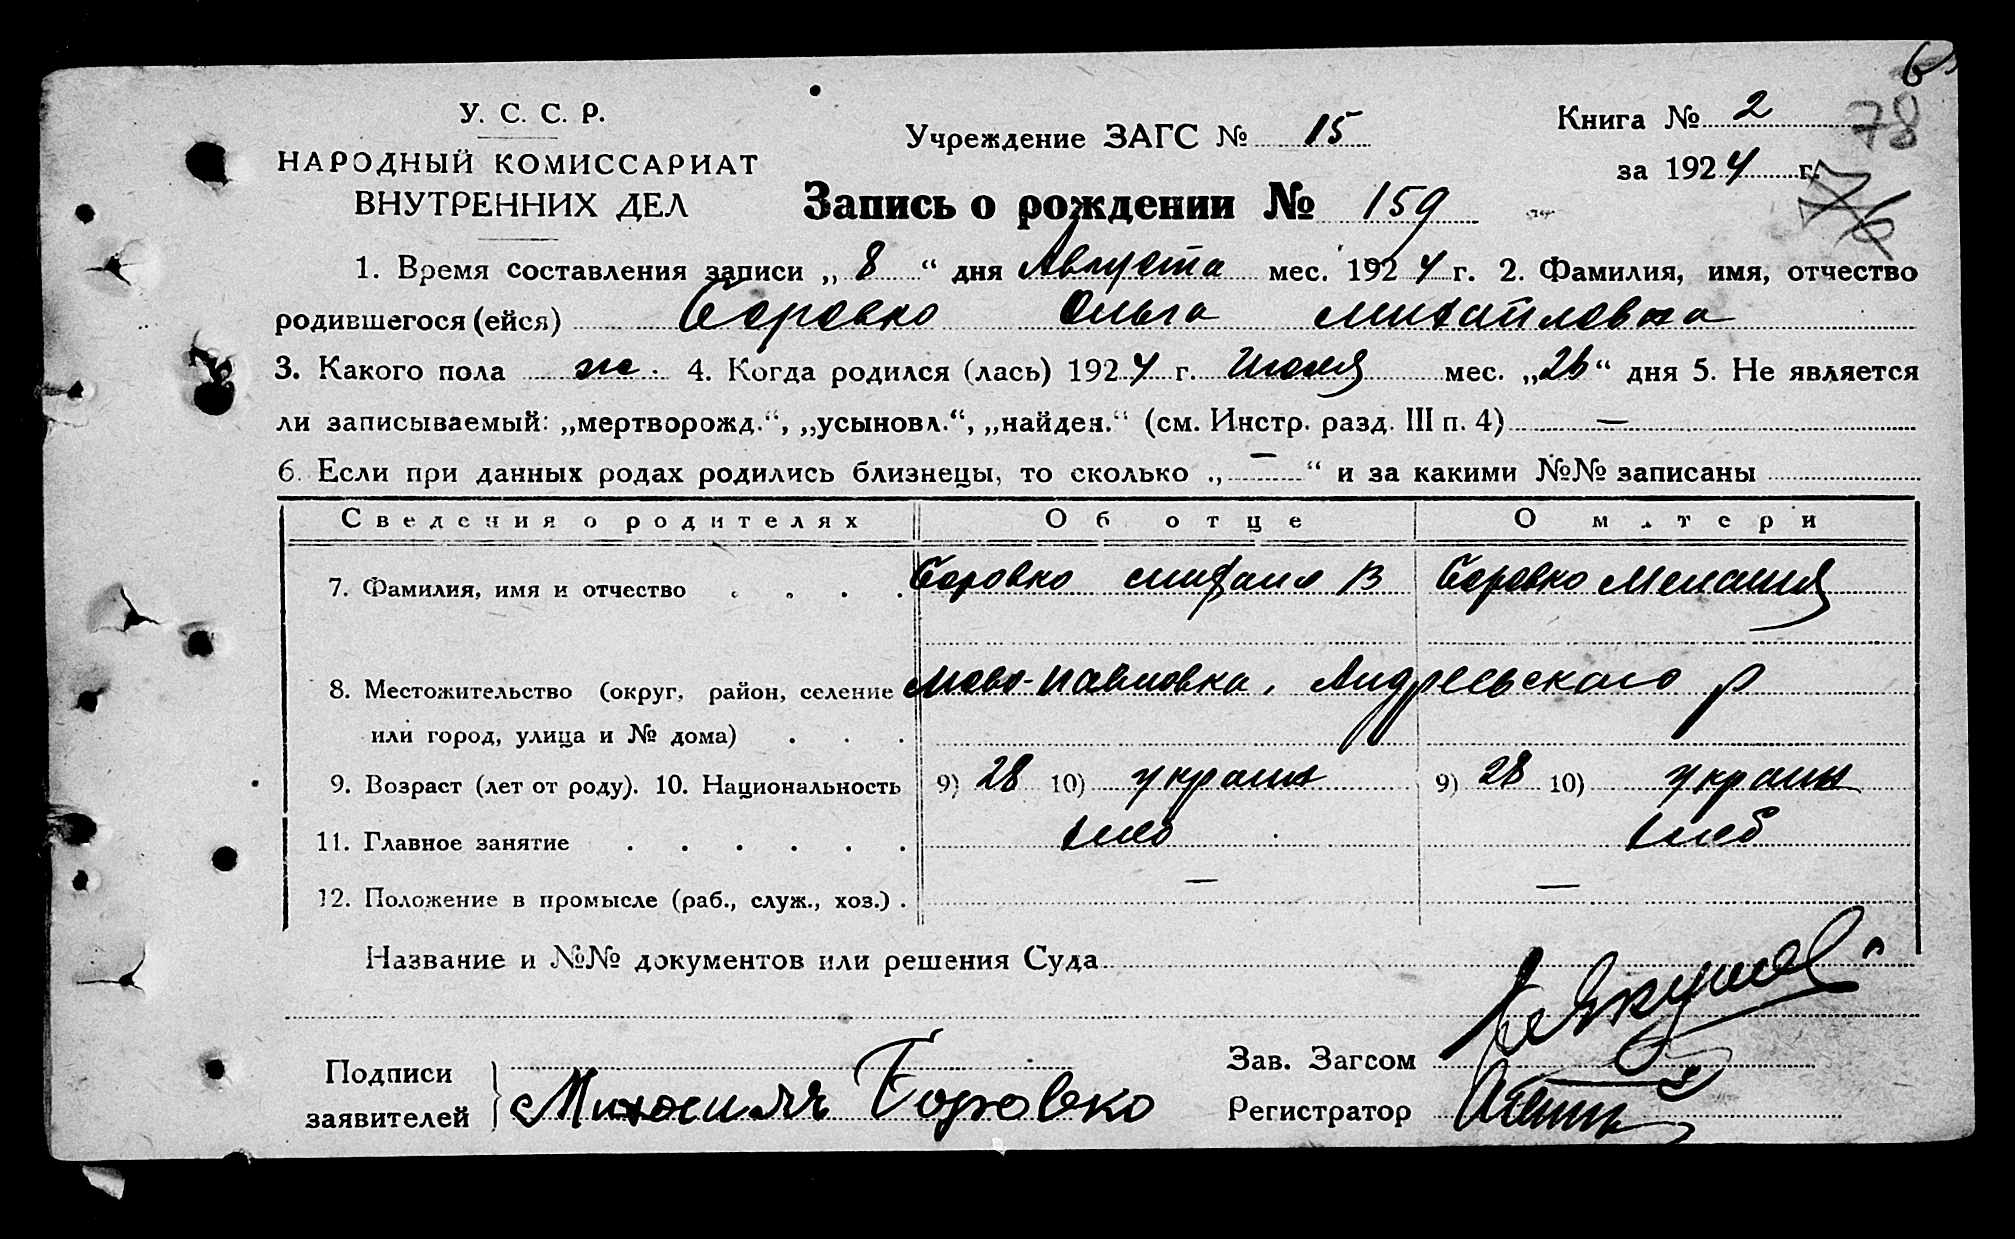 6
У. С. С. Р.
Учреждение ЗАГС № 15
Книга № 2
78
НАРОДНЫЙ КОМИССАРИАТ
за 1924 г.
76
ВНУТРЕННИХ ДЕЛ
Запись о рождении № 159
1. Время составления записи „ 8 “ дня Августа мес. 1924 г. 2. Фамилия, имя, отчество
родившегося (ейся) Боровко Ольга Михайловна
3. Какого пола ж. 4. Когда родился (лась) 1924 г. Июля мес. „26“ дня 5. Не является
ли записываемый: „мертворожд.“, „усыновл.“, „найден.“ (см. Инстр. разд. III п. 4) —
6. Если при данных родах родились близнецы, то сколько „ — “ и за какими №№ записаны
Сведения о родителях Об отце О матери
7. Фамилия, имя и отчество . . . . Боровко Михаил В Боровко Мелания
8. Местожительство (округ, район, селение Ново-Павловка, Андреевского р
или город, улица и № дома) . . .
9. Возраст (лет от роду). 10. Национальность 9) 28 10) украин 9) 28 10) украин
11. Главное занятие . . . . . . хлеб хлеб
12. Положение в промысле (раб., служ., хоз.) . — —
Название и №№ документов или решения Суда
Подписи
заявителей } Михаилъ Боровко
Зав. Загсом
Регистратор